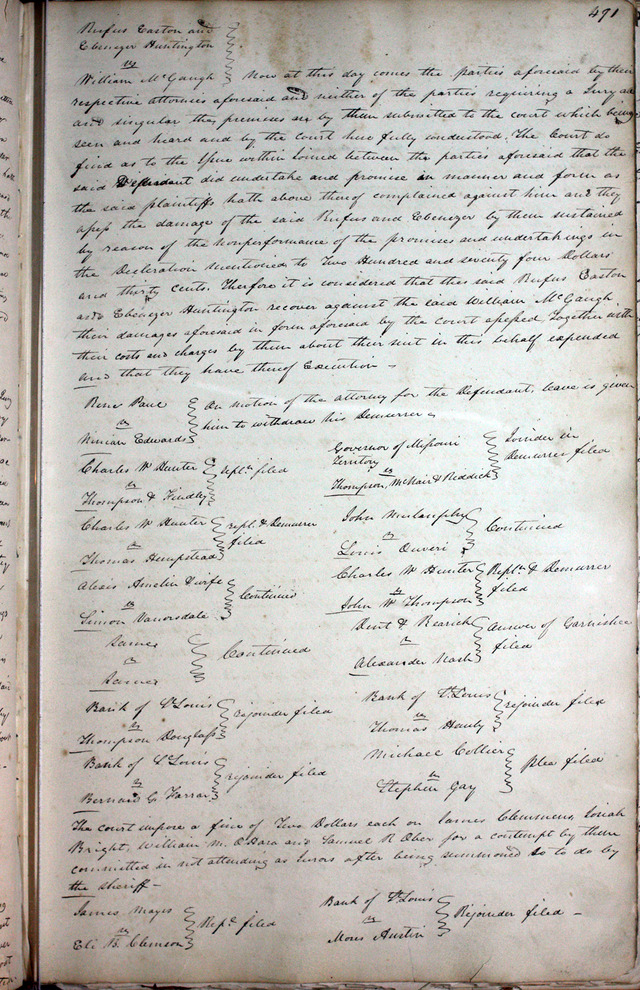 491
Rufus Easton and
Ebenezer Huntington
vs
William McGaugh Now at this day comes the parties aforesaid by their
respective attornies aforesaid and neither of the parties requiring a Jury all
and singular the premises are by them submitted to the court which being
seen and heard and by the Court here fully understood, The Court do
find as to the Issue within Joined between the parties aforesaid that the
said Defendant did undertake and promise in manner and form as
the said plaintiffs hath above thereof complained against him and they
assess the damage of the said Rufus and Ebenezer by them sustained
by reason of the nonperformance of the promises and undertakings in
the Declaration mentioned to Two Hundred and seventy four Dollars
and thirty cents. Therefore it is considered that the said Rufus Easton
and Ebenezer Huntington recover against the said William McGaugh
their damages aforesaid in form aforesaid by the court assessed, Together with
their costs and charges by them about their suit in this behalf expended
and that they have thereof Execution —
Rene Paul
vs
Ninian Edwards
On motion of the attorney for the Defendant, leave is given
him to withdraw his Demurrer
Charles W Hunter
vs
Thompson & Findley
repln filed
Governor of Missouri
Territory
vs
Thompson, McNair & Reddick
Joinder in
Demurrer filed
Charles W Hunter
vs
Thomas Hempstead
repl. & Demurrer
filed
John Mulanphy
vs
Louis
Continued
Alexis Amelin & wife
vs
Simon Vanorsdale
Continued
Charles W Hunter
vs
John W Thompson
Repln & Demurrer
filed
Same
vs
Same
Continued
Dent & Rearick
vs
Alexander Nash
Answer of Garnishee
filed
Bank of St Louis
vs
Thompson Douglass
rejoinder filed
Bank of St. Louis
vs
Thomas Hanly
rejoinder filed
Bank of St Louis
vs
Bernard G Farrar
rejoinder filed
Michael Collier
vs
Stephen Gay
plea filed
The court impose a fine of Two Dollars each on James Clemmens, Josiah
Bright, William M. OHara and Samuel R Ober for a contempt by them
committed in not attending as Jurors after being summoned so to do by
the sheriff —
James Mayes
vs
Eli B. Clemson
Repn filed
Bank of St Louis
vs
Moses Austin
Rejoinder filed —